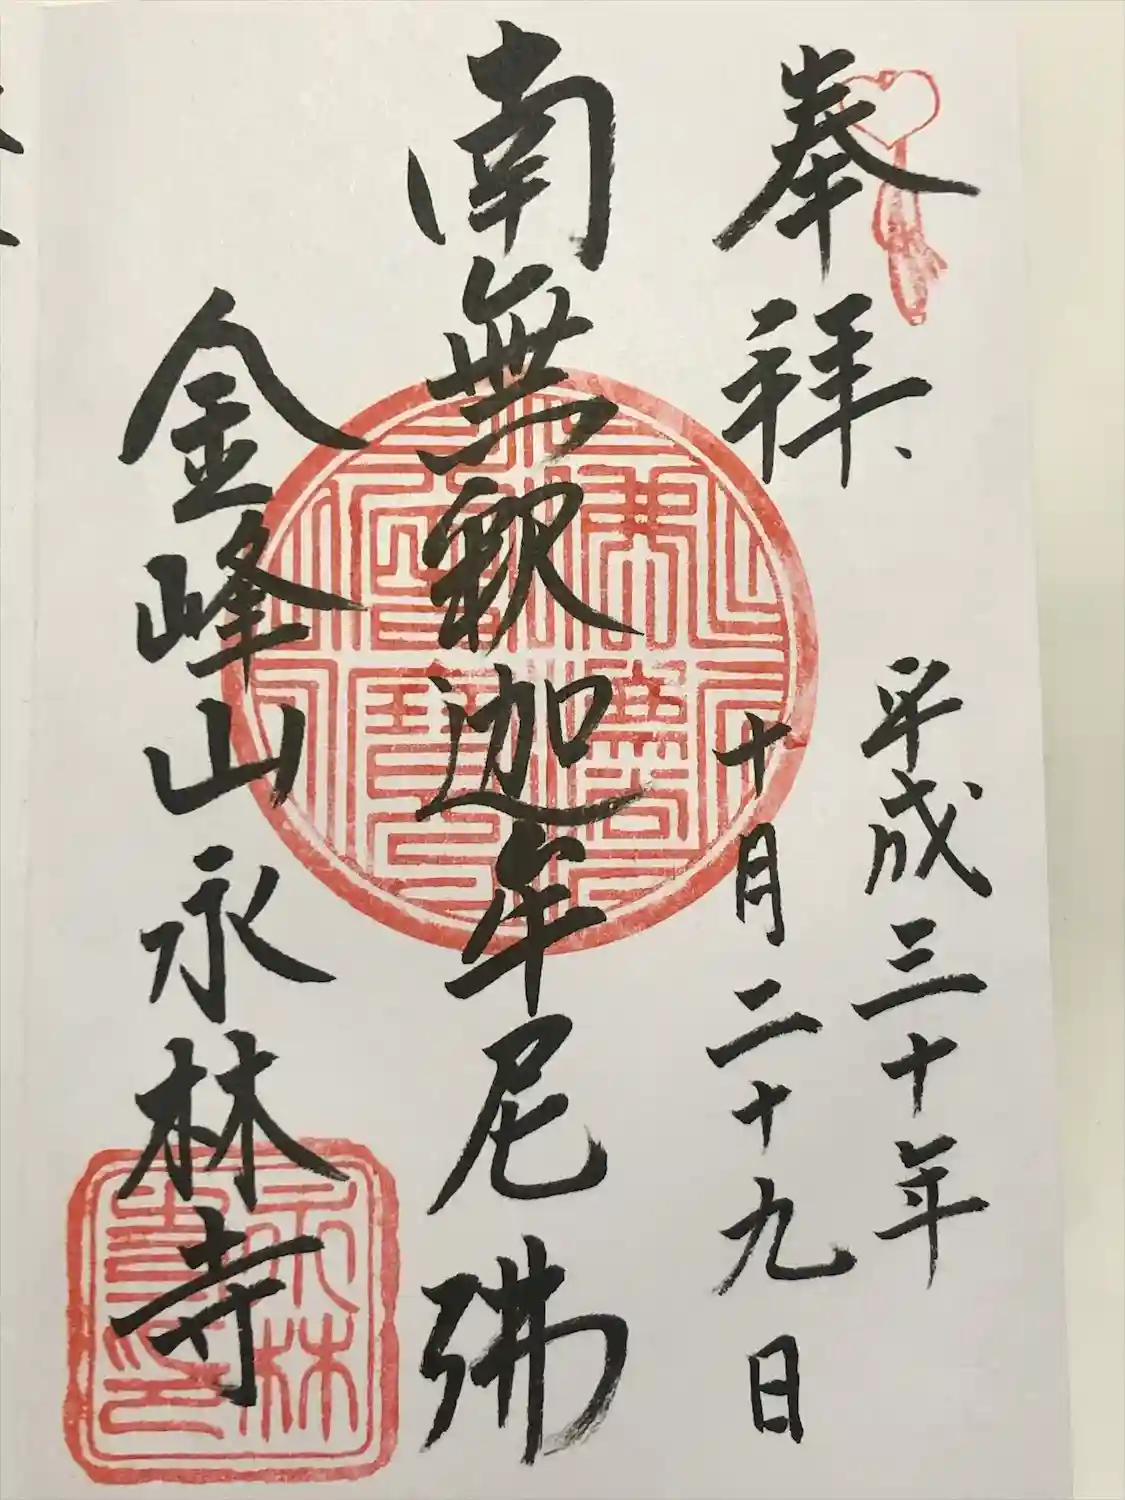 奉拝
平成三十年
十月二十九日
南無釈迦牟尼佛
金峰山永林寺